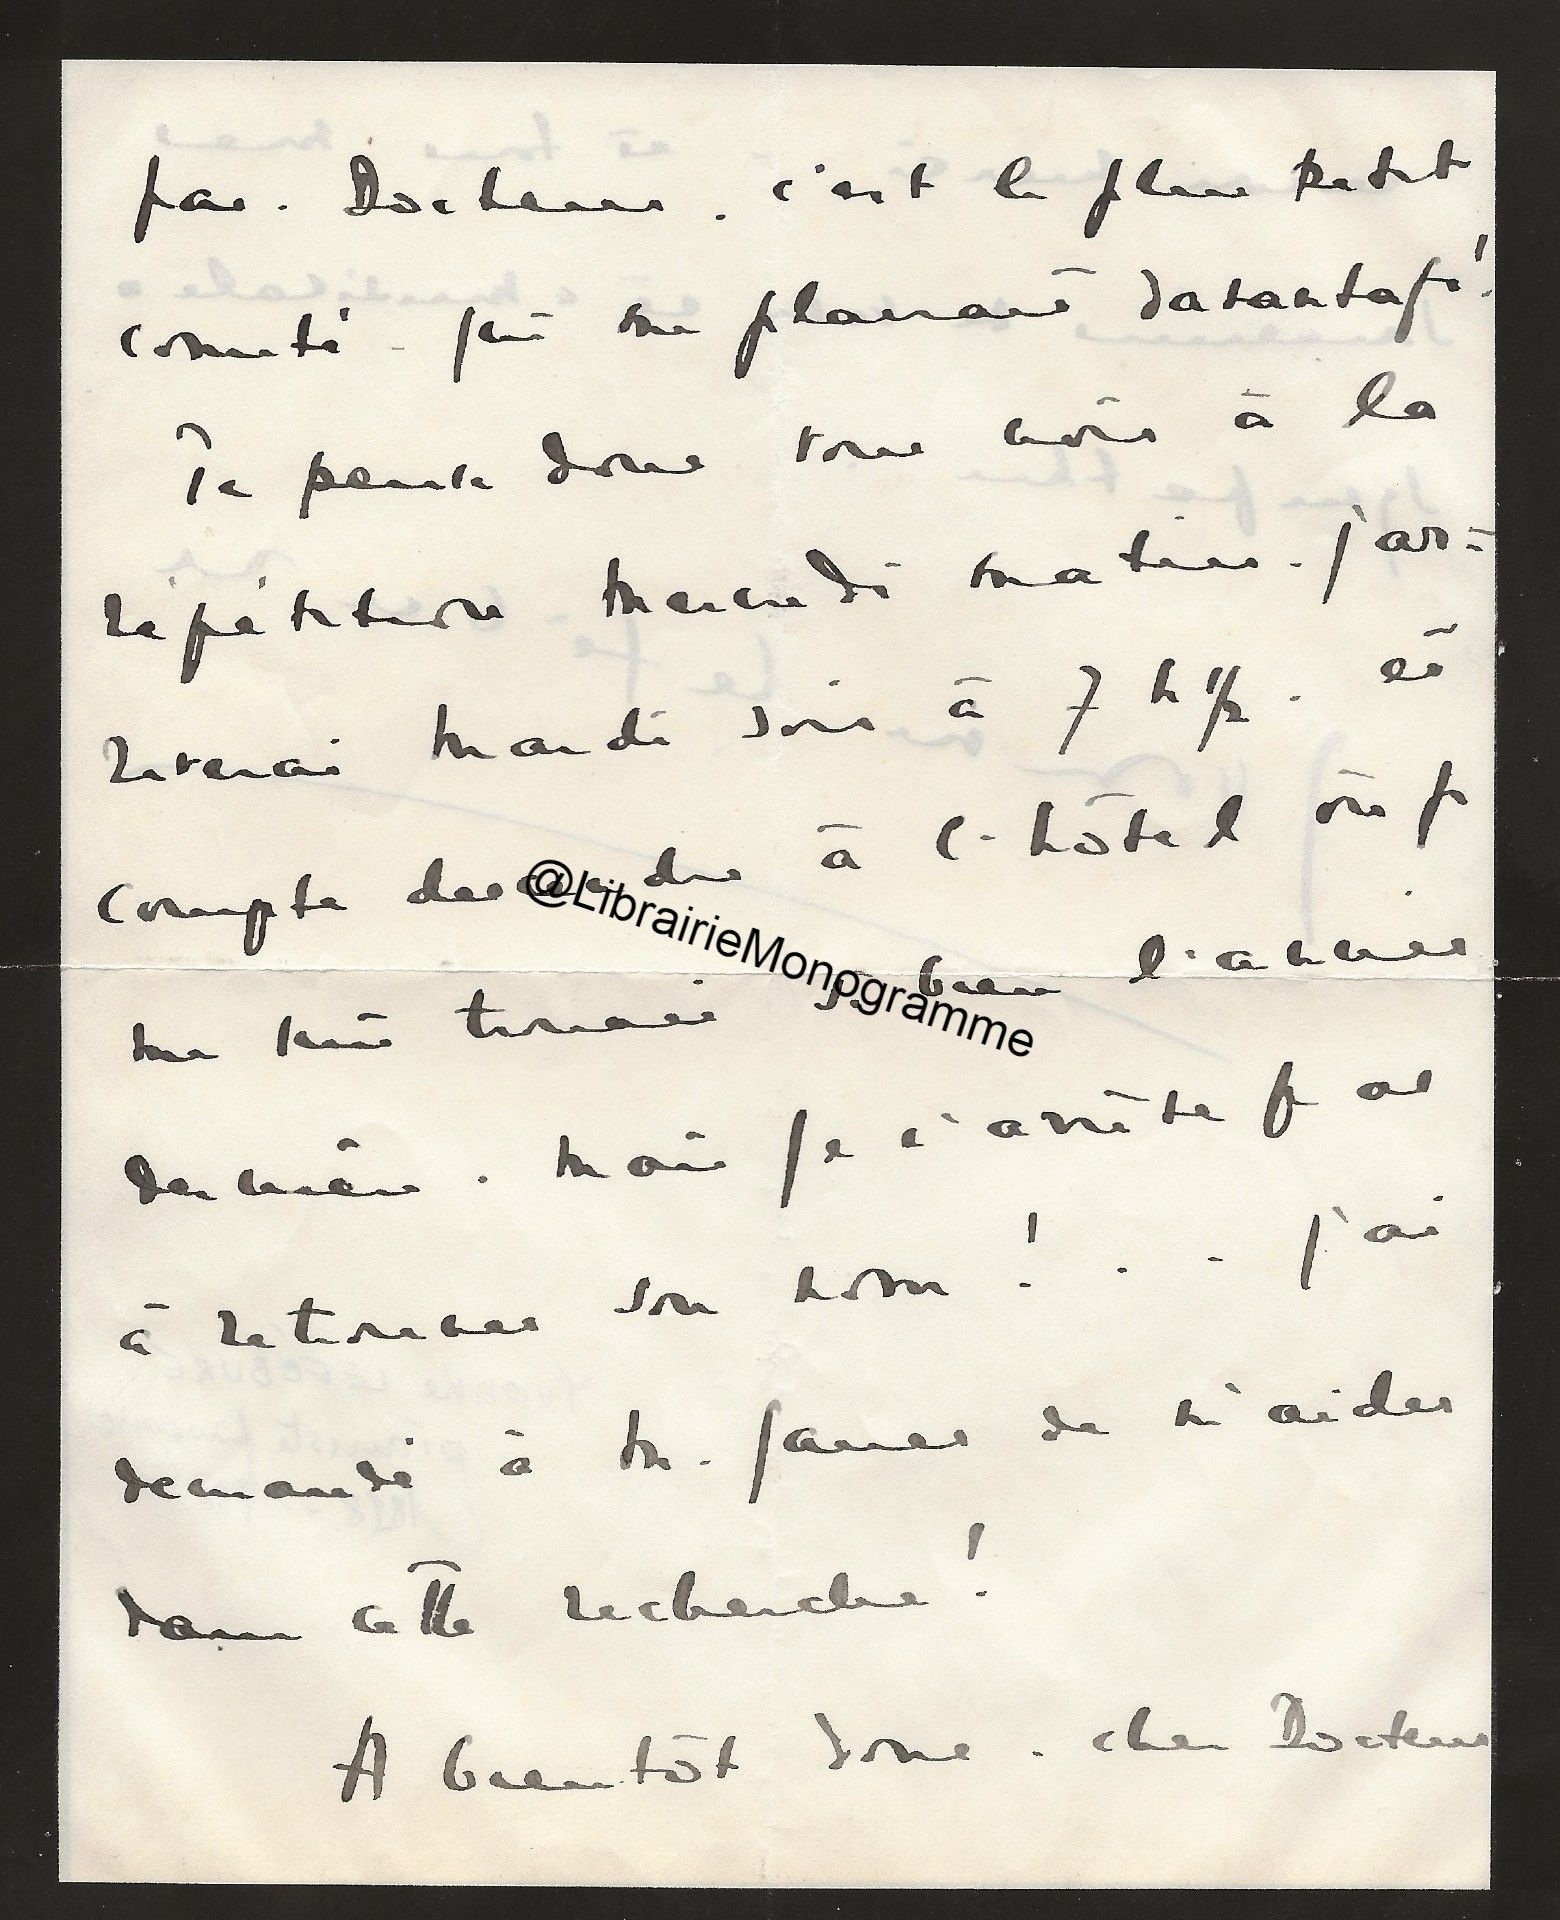 pas. Docteur. c'est le plus petit
comité qui me plairait davantage!
Je pense donc vous voir à la
répétition mercredi matin. j'ar-
riverai mardi soir à 7 h 1/2. et
compte descendre à l'hôtel où je
@LibrairieMonogramme
me suis trouvée si bien l'année
dernière. mais je n'arrête pas
à retrouver son nom! . . j'ai
demandé à M. de m'aider
dans cette recherche!
A bientôt donc. cher Docteur